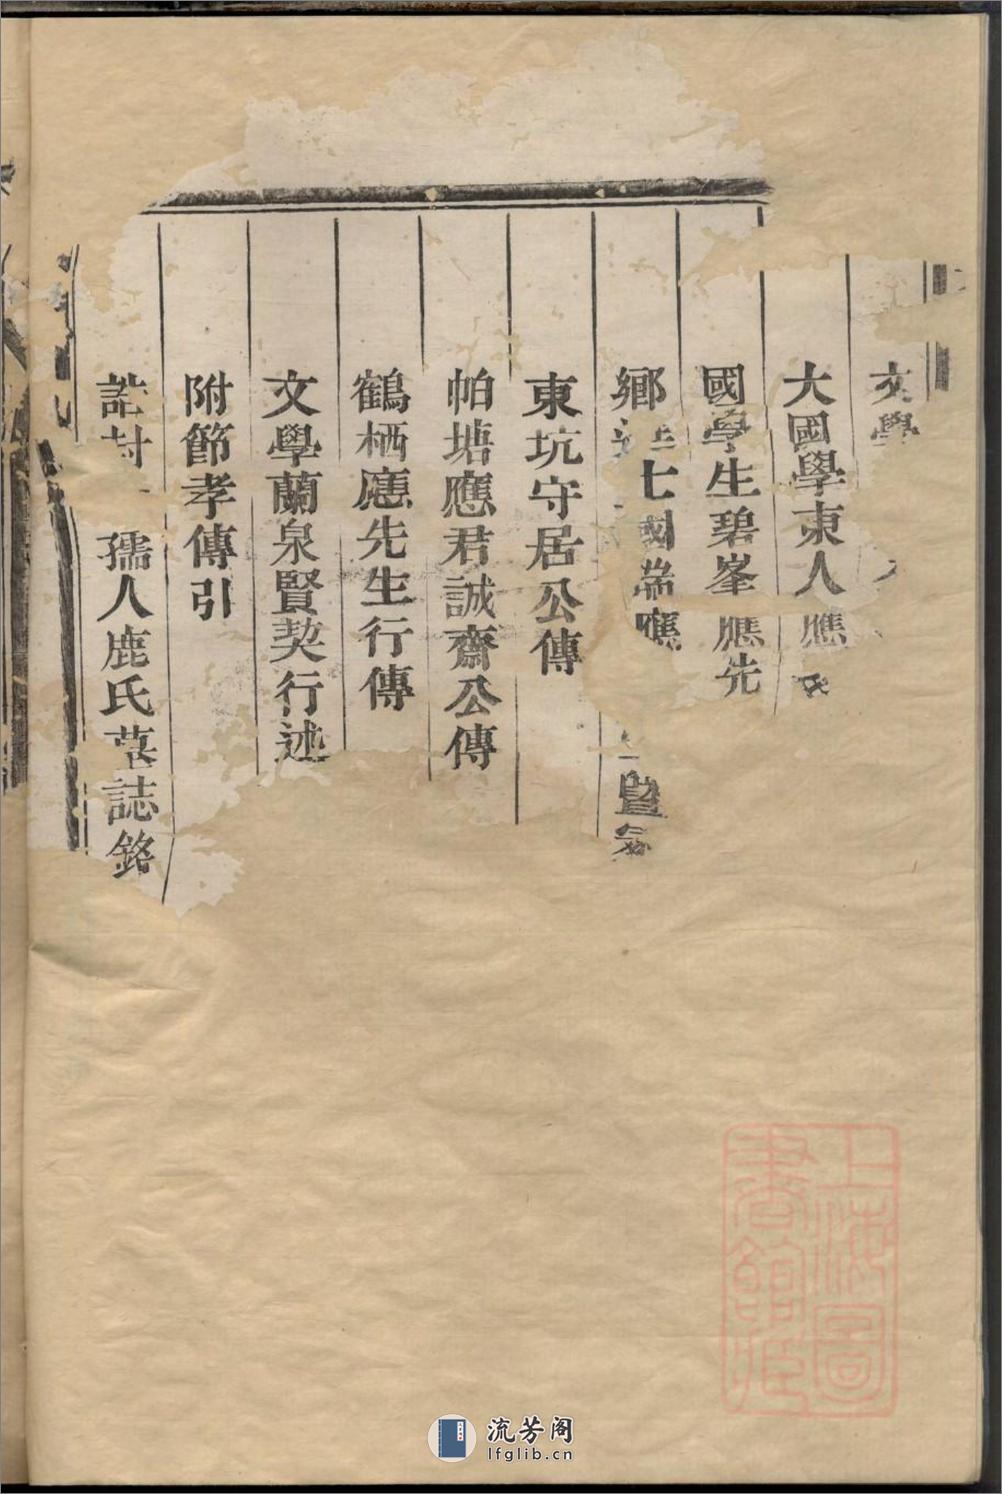 文學
大國學東人應
國學生碧峯應先
鄉進士國端應 暨
東坑守居公傳
帕塘應君誠齋公傳
鶴栖應先生行傳
文學蘭泉賢契行述
附節孝傳引
誥封 孺人鹿氏墓誌銘
上海圖
書館藏
流芳阁
lfglib.cn